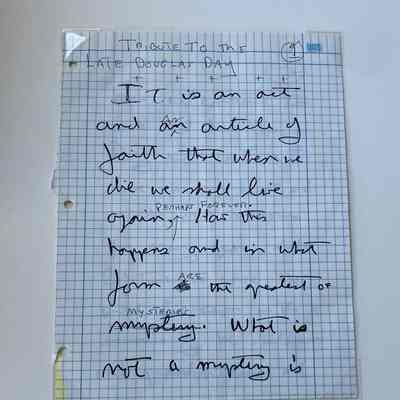 TRIBUTE TO THE
①
LATE DOUGLAS DAY
+ + + + +
IT is an act
and an article of
faith that when we
die we shall live
PERHAPS FOREVER.
again, How this
happens and in what
form ARE the greatest of
MYSTERIES
mystery. What is
not a mystery is